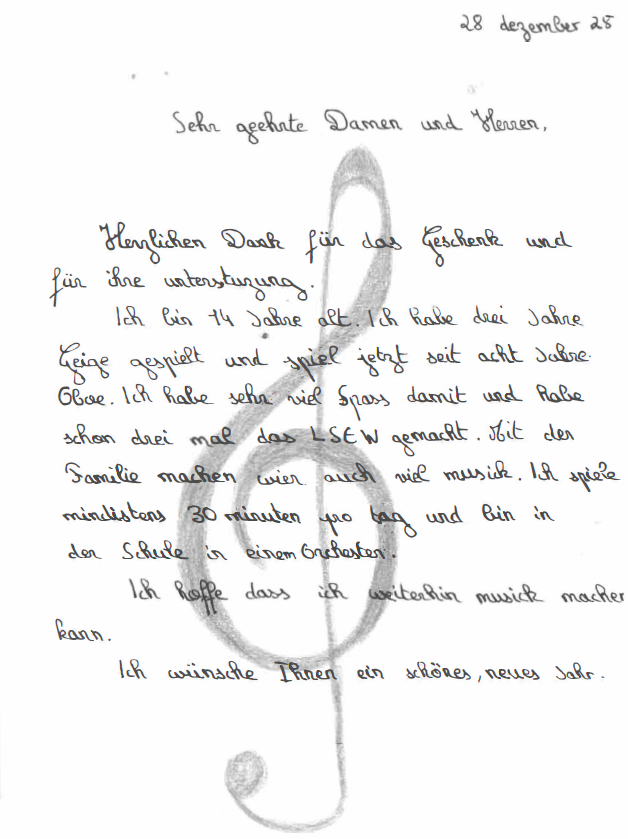 28 dezember 25
Sehr geehrte Damen und Herren,
Herzlichen Dank für das Geschenk und
für ihre unterstuzung.
Ich bin 14 Jahre alt. Ich habe drei Jahre
Geige gespielt und spiel jetzt seit acht Jahre
Oboe. Ich habe sehr viel Spass damit und habe
schon drei mal das LSEW gemacht. Mit der
Familie machen wier auch viel musick. Ich spiele
mindistens 30 minuten pro tag und bin in
der Schule in einem Orchester.
Ich hoffe dass ich weiterhin musick machen
kann.
Ich wünsche Ihnen ein schönes, neues Jahr.